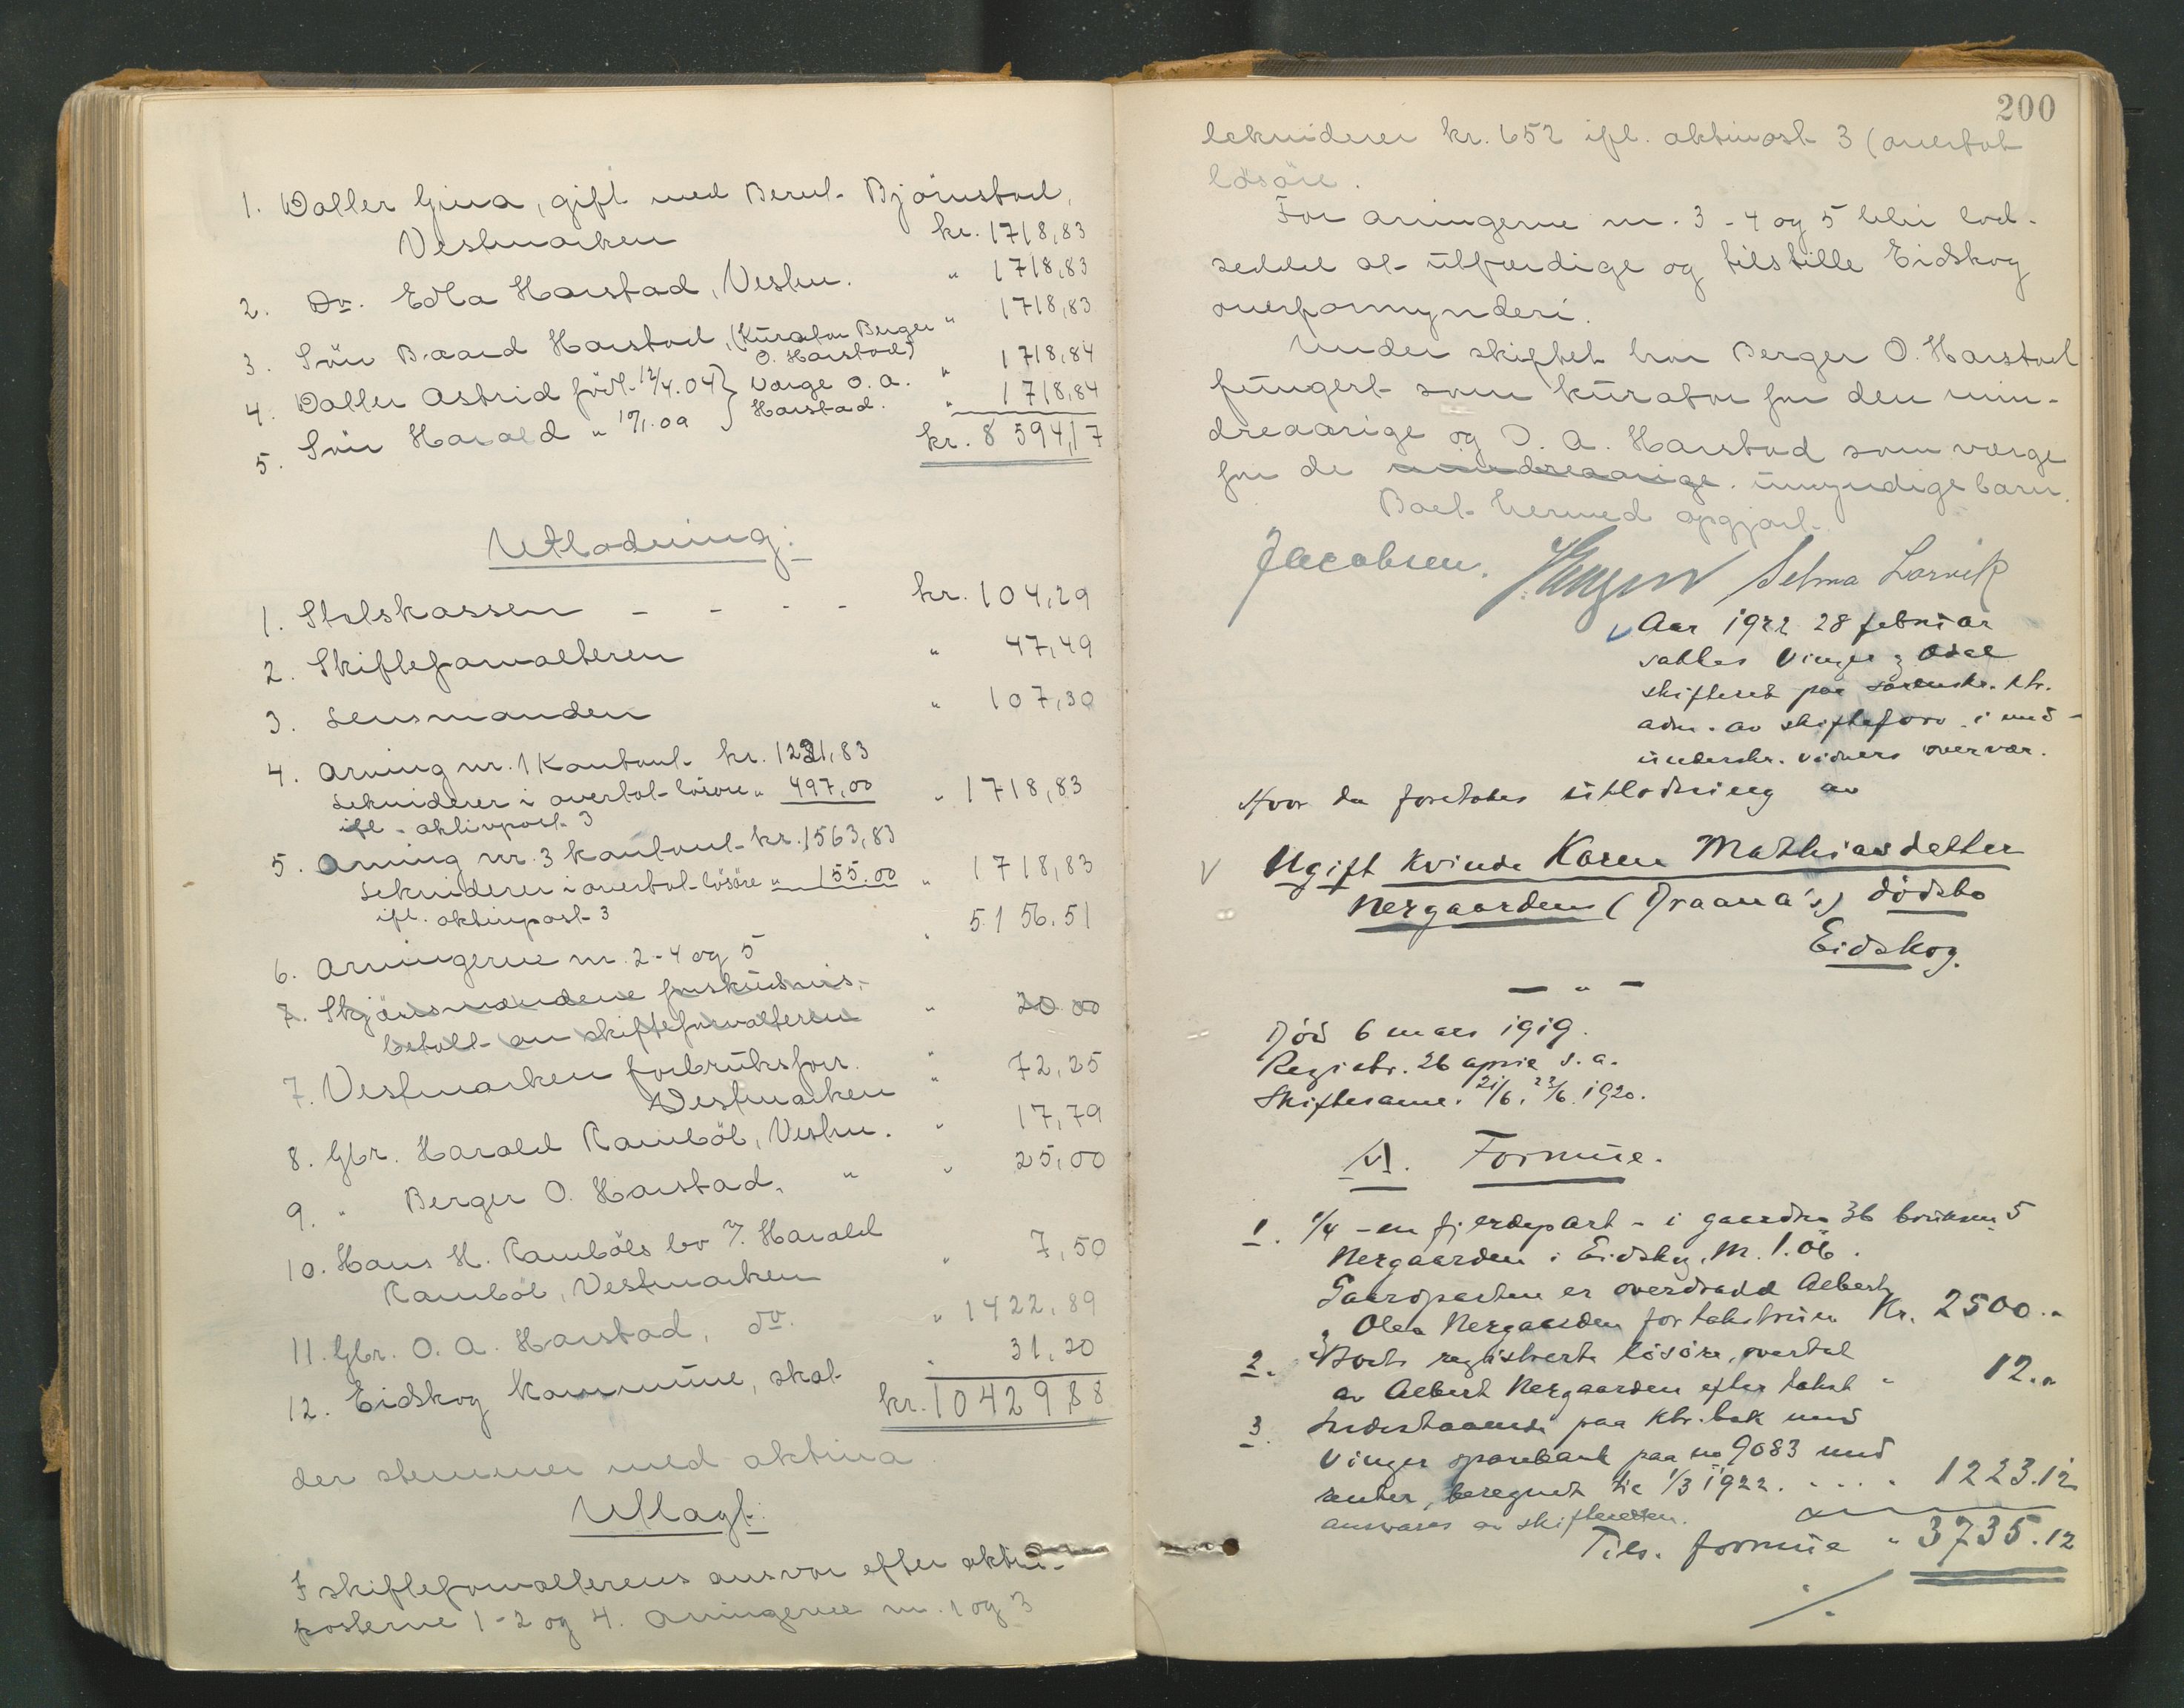 1. Datter Gina, gift med Bernt Bjørnstad,
Vestmarken kr. 1718,83
2. Do. Edla Harstad, Vestm. " 1718,83
3. Sön Baard Harstad, (Kurator Berger O. Harstad) " 1718,83
4. Datter Astrid född 12/4.04 } Værge O. A. " 1718,84
5. Sön Harald " 19/1.09 } Harstad. " 1718,84
kr. 8594,17
Utlodning:
1. Statskassen - - - - kr. 104,29
2. Skifteforvalteren " 47,49
3. Lensmanden " 107,30
4. Arving nr. 1 Kontant kr. 1221,83
Lekviderer i overtat lösöre " 497,00 " 1718,83
ifl. aktivpost 3
5. Arving nr. 3 kontant kr. 1563,83
Lekviderer i overtat lösöre " 155.00 " 1718,83
ifl. aktivpost 3
6. Arvingerne nr. 2-4 og 5 " 5156.51
7. Skjönsmændene forskudsvis
betalt av skifteforvalteren " 20.00
7. Vestmarken forbruksforr.
Vestmarken " 72,25
8. Gbr. Harald Ramböl, Vestm. " 17,79
9. " Berger O. Harstad, " " 25,00
10. Hans H. Ramböls bo v. Harald
Ramböl, Vestmarken " 7,50
11. Gbr. O. A. Harstad, do. " 1422,89
12. Eidskog Kommune, skat " 31,20
kr. 10429,88
der stemmer med aktiva
Utlagt:
I skifteforvalterens ansvar efter aktiv-
posterne 1-2 og 4. Arvingerne nr. 1 og 3
200
lekviderer kr. 652 ifl. aktivpost 3 (overtat
lösöre.
For arvingerne nr. 3-4 og 5 blir lod-
seddel at utfærdige og tilstille Eidskog
overformynderi.
Under skiftet har Berger O. Harstad
fungert som kurator for den min-
dreaarige og O. A. Harstad som værge
for de mindreaarige umyndige barn.
Boet hermed opgjort.
Jacobsen. Selma Larvik
Aar 1922 28 februar
sattes Vinger & Odal
skifteret paa sorenskr. ktr.
adm. av skifteforv. i med-
underskr. vidners overvær.
Hvor da foretokes utlodning av
Ugift Kvinde Karen Mathiasdatter
Nergaarden (Draana's) dödsbo
Eidskog.
— " —
Död 6 mars 1919.
Registr. 26 april s. a.
Skiftesaml. 21/6, 23/6 1920.
A. Formue.
1. 1/4 - en fjerdepart - i gaardnr 36 bruksnr 5
Nergaarden i Eidskog, M. 1.06.
Gaardparten er overdradd Albert
& Olea Nergaarden for taksten Kr. 2500."
2. Boets registrerte lösöre, overtat
av Albert Nergaarden efter takst " 12."
3. Indestaaende paa ktr. bok med
Vinger sparebank paa no 9083 med
renter, beregnet til 1/3 1922. . . . . 1223.12
ansvares av skifteretten.
Tils. formue " 3735.12
./.